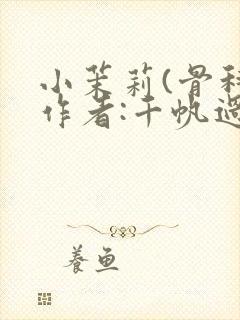 小茉莉(骨科
作者:千帆過
養魚